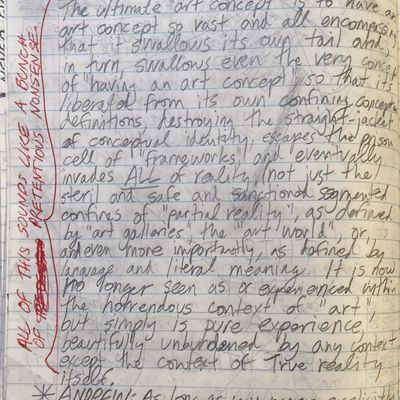 The ultimate art concept is to have an
art concept so vast and all encompassing
that it swallows its own tail and,
in turn, swallows even the very concept
of "having an art concept" so that it's
liberated from its own confining concept
definitions, destroying the straight-jacket
of conceptual identity, escapes the prison
cell of "frameworks" and eventually
invades ALL of reality (not just the
steril and safe and sanctioned segmented
confines of "partial reality", as defined
by "art galleries", the "art world" or,
and even more importantly, as defined by
language and literal meaning. It is now
no longer seen as or experienced within
the horrendous context of "art",
but simply is pure experience,
beautifully unburdened by any context
except the context of True reality
itself.
* ANDREW: As long as
ALL OF THIS SOUNDS LIKE A BUNCH
OF PRETENTIOUS NONSENSE.